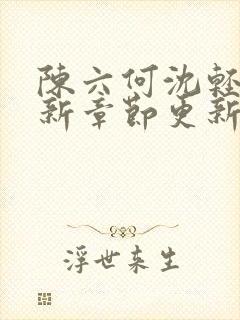 陳六何沈輕
新章節更新
浮世来生